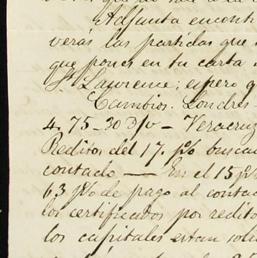 Adjunta encont
verás las partidas que
que pones en tu carta
Sr Lawrence; espero q
Cambios. Londres
4,75-30 d/v - Veracruz
Reditos del 17. p% buscan
contado — En el 15 p%
63 p% de pago al contad
los certificados por redito
los capitales estan soli